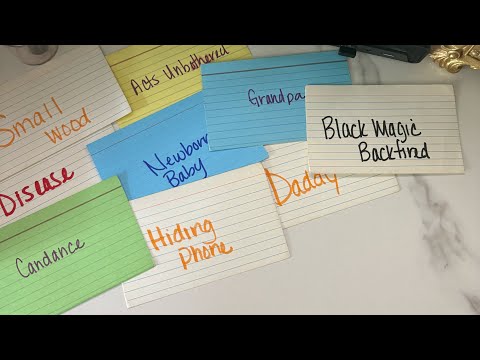 Acts Unbothered
Small
Wood
Grandpa
Black Magic
Backfired
Newborn
Baby
Disease
Daddy
Hiding
Phone
Candance